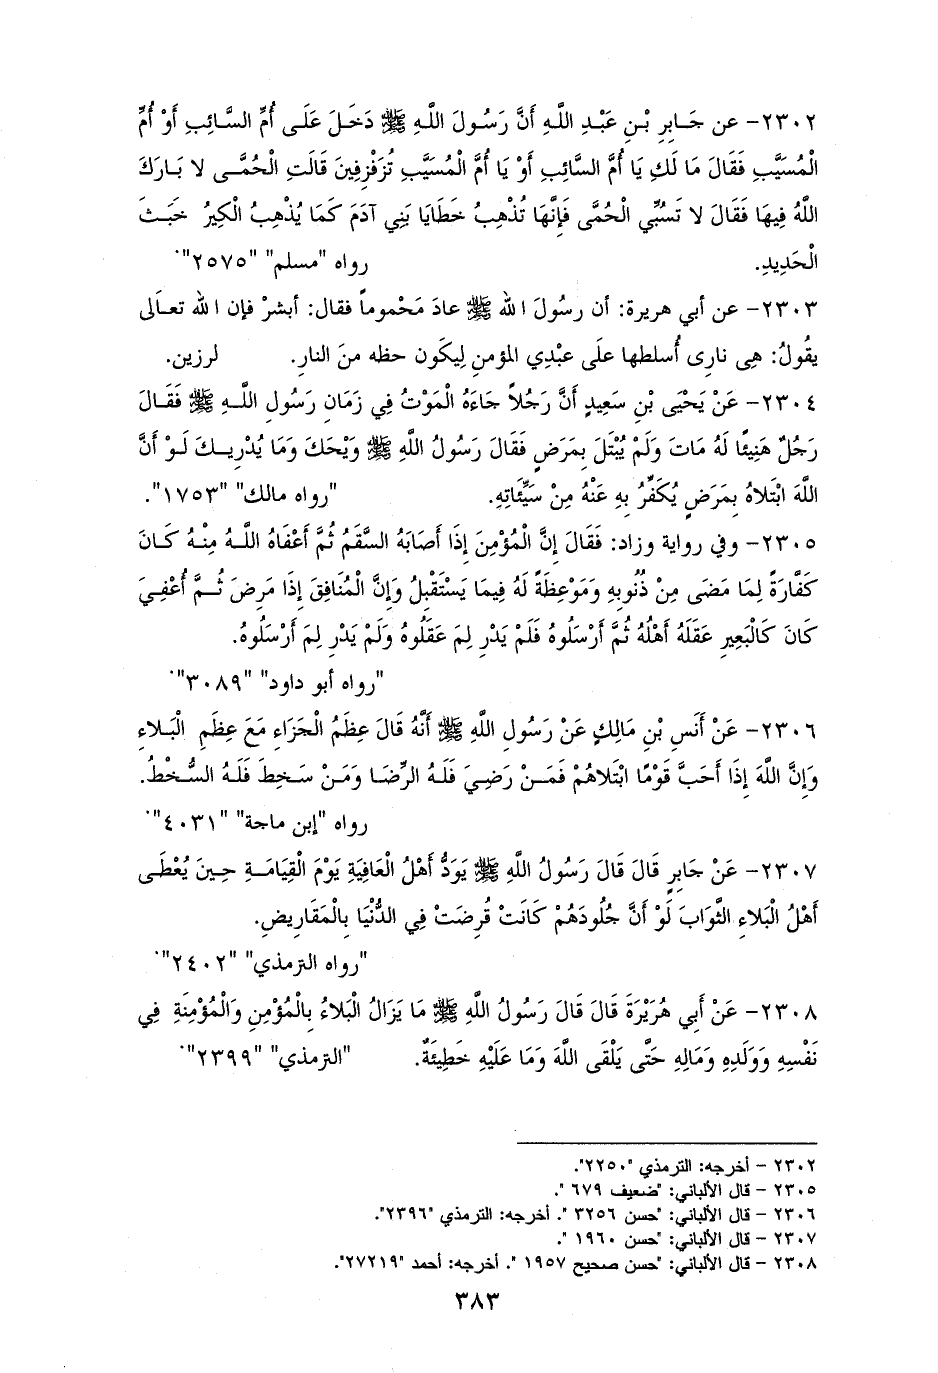 ٢٣٠٢- عن جَابِرِ بْنِ عَبْدِ اللَّهِ أَنَّ رَسُولَ اللَّهِ ﷺ دَخَلَ عَلَى أُمِّ السَّائِبِ أَوْ أُمِّ
الْمُسَيَّبِ فَقَالَ مَا لَكِ يَا أُمَّ السَّائِبِ أَوْ يَا أُمَّ الْمُسَيَّبِ تُزَفْزِفِينَ قَالَتِ الْحُمَّى لا بَارَكَ
اللَّهُ فِيهَا فَقَالَ لا تَسُبِّي الْحُمَّى فَإِنَّهَا تُذْهِبُ خَطَايَا بَنِي آدَمَ كَمَا يُذْهِبُ الْكِيرُ خَبَثَ
الْحَدِيدِ. رواه "مسلم" "٢٥٧٥".
٢٣٠٣- عن أبي هريرة: أن رسُولَ الله ﷺ عادَ مَحْموماً فقال: أبشرْ فإن الله تعالى
يقُولُ: هِى نارِى أُسلطها علَى عبْدِي المؤمنِ لِيكَون حظه منَ النارِ. لرزين.
٢٣٠٤- عَنْ يَحْيَى بْنِ سَعِيدٍ أَنَّ رَجُلاً جَاءَهُ الْمَوْتُ فِي زَمَانِ رَسُولِ اللَّهِ ﷺ فَقَالَ
رَجُلٌ هَنِيئًا لَهُ مَاتَ وَلَمْ يُبْتَلَ بِمَرَضٍ فَقَالَ رَسُولُ اللَّهِ ﷺ وَيْحَكَ وَمَا يُدْرِيكَ لَوْ أَنَّ
اللَّهَ ابْتَلاهُ بِمَرَضٍ يُكَفِّرُ بِهِ عَنْهُ مِنْ سَيِّئَاتِهِ. "رواه مالك" "١٧٥٣".
٢٣٠٥- وفي رواية وزاد: فَقَالَ إِنَّ الْمُؤْمِنَ إِذَا أَصَابَهُ السَّقَمُ ثُمَّ أَعْفَاهُ اللَّهُ مِنْهُ كَانَ
كَفَّارَةً لِمَا مَضَى مِنْ ذُنُوبِهِ وَمَوْعِظَةً لَهُ فِيمَا يَسْتَقْبِلُ وَإِنَّ الْمُنَافِقَ إِذَا مَرِضَ ثُمَّ أُعْفِيَ
كَانَ كَالْبَعِيرِ عَقَلَهُ أَهْلُهُ ثُمَّ أَرْسَلُوهُ فَلَمْ يَدْرِ لِمَ عَقَلُوهُ وَلَمْ يَدْرِ لِمَ أَرْسَلُوهُ.
"رواه أبو داود" "٣٠٨٩".
٢٣٠٦- عَنْ أَنَسِ بْنِ مَالِكٍ عَنْ رَسُولِ اللَّهِ ﷺ أَنَّهُ قَالَ عِظَمُ الْجَزَاءِ مَعَ عِظَمِ الْبَلاءِ
وَإِنَّ اللَّهَ إِذَا أَحَبَّ قَوْمًا ابْتَلاهُمْ فَمَنْ رَضِيَ فَلَهُ الرِّضَا وَمَنْ سَخِطَ فَلَهُ السُّخْطُ.
رواه "إبن ماجة" "٤٠٣١".
٢٣٠٧- عَنْ جَابِرٍ قَالَ قَالَ رَسُولُ اللَّهِ ﷺ يَوَدُّ أَهْلُ الْعَافِيَةِ يَوْمَ الْقِيَامَةِ حِينَ يُعْطَى
أَهْلُ الْبَلاءِ الثَّوَابَ لَوْ أَنَّ جُلُودَهُمْ كَانَتْ قُرِضَتْ فِي الدُّنْيَا بِالْمَقَارِيضِ.
"رواه الترمذي" "٢٤٠٢".
٢٣٠٨- عَنْ أَبِي هُرَيْرَةَ قَالَ قَالَ رَسُولُ اللَّهِ ﷺ مَا يَزَالُ الْبَلاءُ بِالْمُؤْمِنِ وَالْمُؤْمِنَةِ فِي
نَفْسِهِ وَوَلَدِهِ وَمَالِهِ حَتَّى يَلْقَى اللَّهَ وَمَا عَلَيْهِ خَطِيئَةٌ. "الترمذي" "٢٣٩٩".
٢٣٠٢ - أخرجه: الترمذي "٢٢٥٠".
٢٣٠٥ - قال الألباني: "ضعيف ٦٧٩ ".
٢٣٠٦ - قال الألباني: "حسن ٣٢٥٦ ". أخرجه: الترمذي "٢٣٩٦".
٢٣٠٧ - قال الألباني: "حسن ١٩٦٠ ".
٢٣٠٨ - قال الألباني: "حسن صحيح ١٩٥٧ ". أخرجه: أحمد "٢٧٢١٩".
٣٨٣